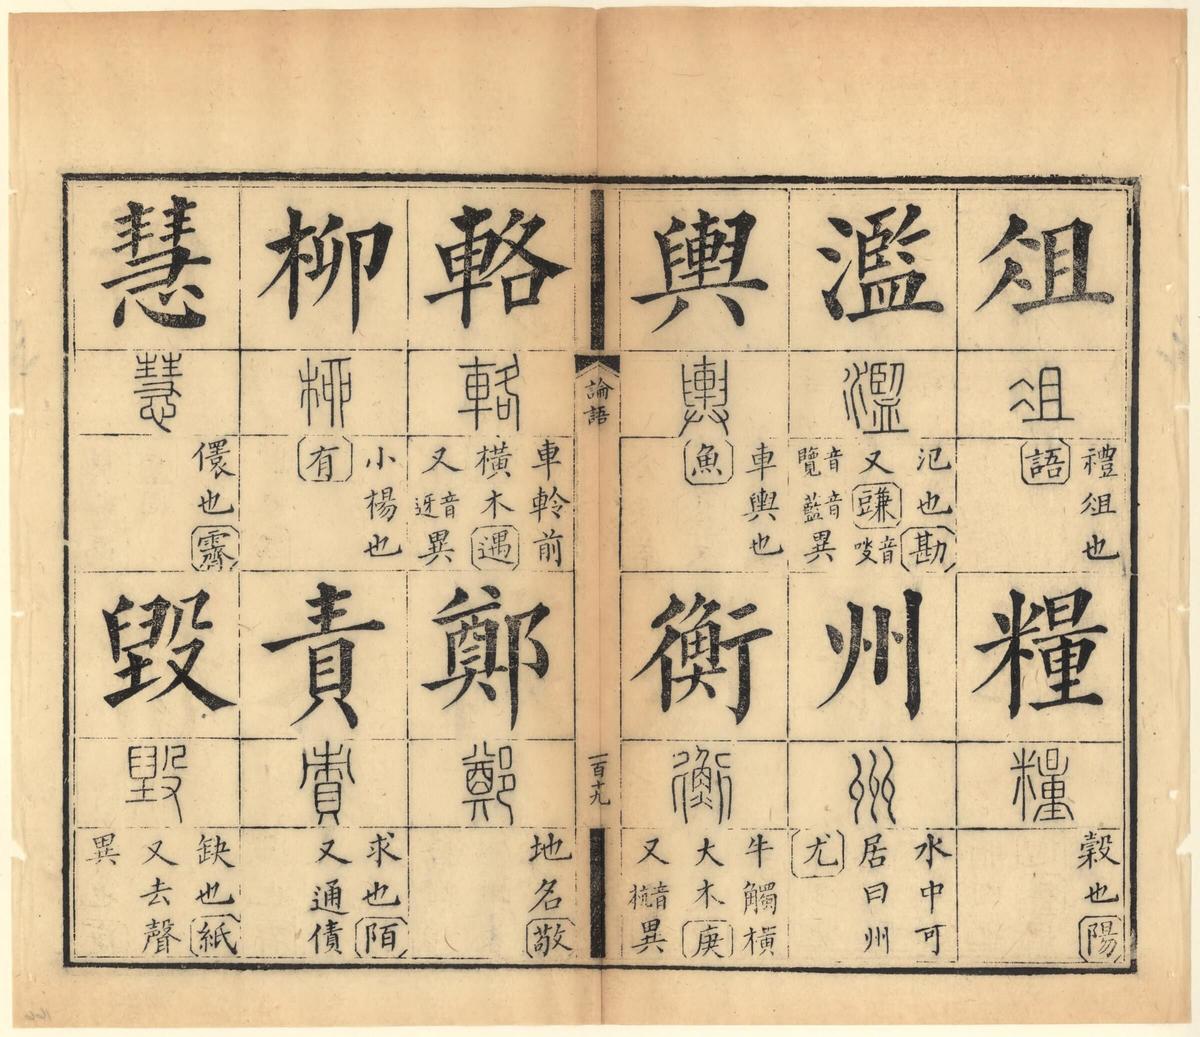 俎
俎
禮俎也
語
糧
糧
穀也陽
濫
濫
氾也勘
又豏音
音覽音藍異
州
州
水中可
居曰州
尤
輿
輿
車輿也
魚
衡
衡
牛觸橫
大木庚
又音杭異
論語
一百十九
輅
輅
車軨前
橫木遇
又音迓異
鄭
鄭
地名敬
柳
柳
小楊也
有
責
責
求也陌
又通債
慧
慧
儇也霽
毀
毀
缺也紙
又去聲
異